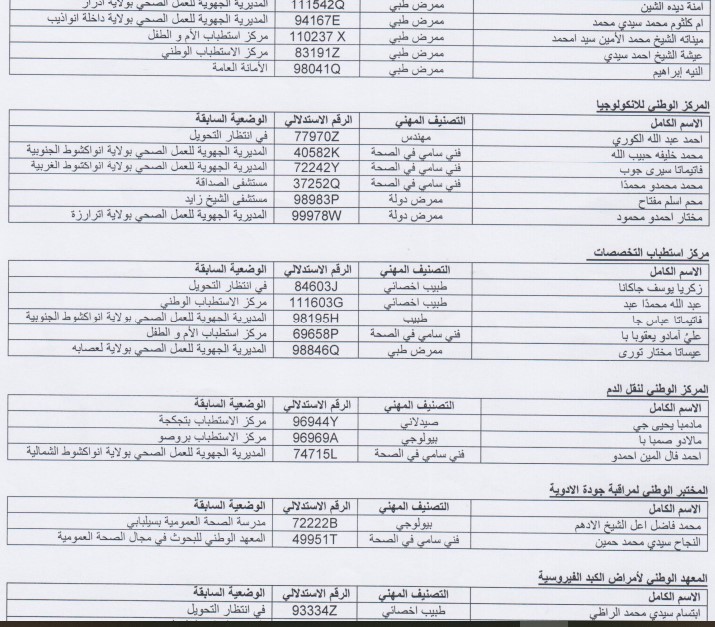 آمنة ديده الشين ممرض طبي 111542Q المديرية الجهوية للعمل الصحي بولاية أدرار
ام كلثوم محمد سيدي محمد ممرض طبي 94167E المديرية الجهوية للعمل الصحي بولاية داخلة انواذيب
ميناته الشيخ محمد الأمين سيد امحمد ممرض طبي 110237 X مركز استطباب الأم و الطفل
عيشة الشيخ احمد سيدي ممرض طبي 83191Z مركز الاستطباب الوطني
النيه إبراهيم ممرض طبي 98041Q الأمانة العامة
المركز الوطني للانكولوجيا
الاسم الكامل التصنيف المهني الرقم الاستدلالي الوضعية السابقة
احمد عبد الله الكوري مهندس 77970Z في انتظار التحويل
محمد خليفه حبيب الله فني سامي في الصحة 40582K المديرية الجهوية للعمل الصحي بولاية انواكشوط الجنوبية
فاتيماتا سيرى جوب فني سامي في الصحة 72242Y المديرية الجهوية للعمل الصحي بولاية انواكشوط الغربية
محمد محمدو محمدا فني سامي في الصحة 37252Q مستشفى الصداقة
محم اسلم مفتاح ممرض دولة 98983P مستشفى الشيخ زايد
مختار احمدو محمود ممرض دولة 99978W المديرية الجهوية للعمل الصحي بولاية اترارزة
مركز استطباب التخصصات
الاسم الكامل التصنيف المهني الرقم الاستدلالي الوضعية السابقة
زكريا يوسف جاكانا طبيب اخصائي 84603J في انتظار التحويل
عبد الله محمدا عبد طبيب اخصائي 111603G مركز الاستطباب الوطني
فاتيماتا عباس جا طبيب 98195H المديرية الجهوية للعمل الصحي بولاية انواكشوط الجنوبية
علي أمادو يعقوبا با فني سامي في الصحة 69658P مركز استطباب الأم و الطفل
عيساتا مختار تورى ممرض طبي 98846Q المديرية الجهوية للعمل الصحي بولاية لعصابه
المركز الوطني لنقل الدم
الاسم الكامل التصنيف المهني الرقم الاستدلالي الوضعية السابقة
مادمبا يحيى جي صيدلاني 96944Y مركز الاستطباب بتجكجة
مالادو صمبا با بيولوجي 96969A مركز الاستطباب بروصو
احمد فال المين احمدو فني سامي في الصحة 74715L المديرية الجهوية للعمل الصحي بولاية انواكشوط الشمالية
المختبر الوطني لمراقبة جودة الادوية
الاسم الكامل التصنيف المهني الرقم الاستدلالي الوضعية السابقة
محمد فاضل اعل الشيخ الادهم بيولوجي 72222B مدرسة الصحة العمومية بسيلبابي
النجاح سيدي محمد حمين فني سامي في الصحة 49951T المعهد الوطني للبحوث في مجال الصحة العمومية
المعهد الوطني لأمراض الكبد الفيروسية
الاسم الكامل التصنيف المهني الرقم الاستدلالي الوضعية السابقة
ابتسام سيدي محمد الراظي طبيب اخصائي 93334Z في انتظار التحويل